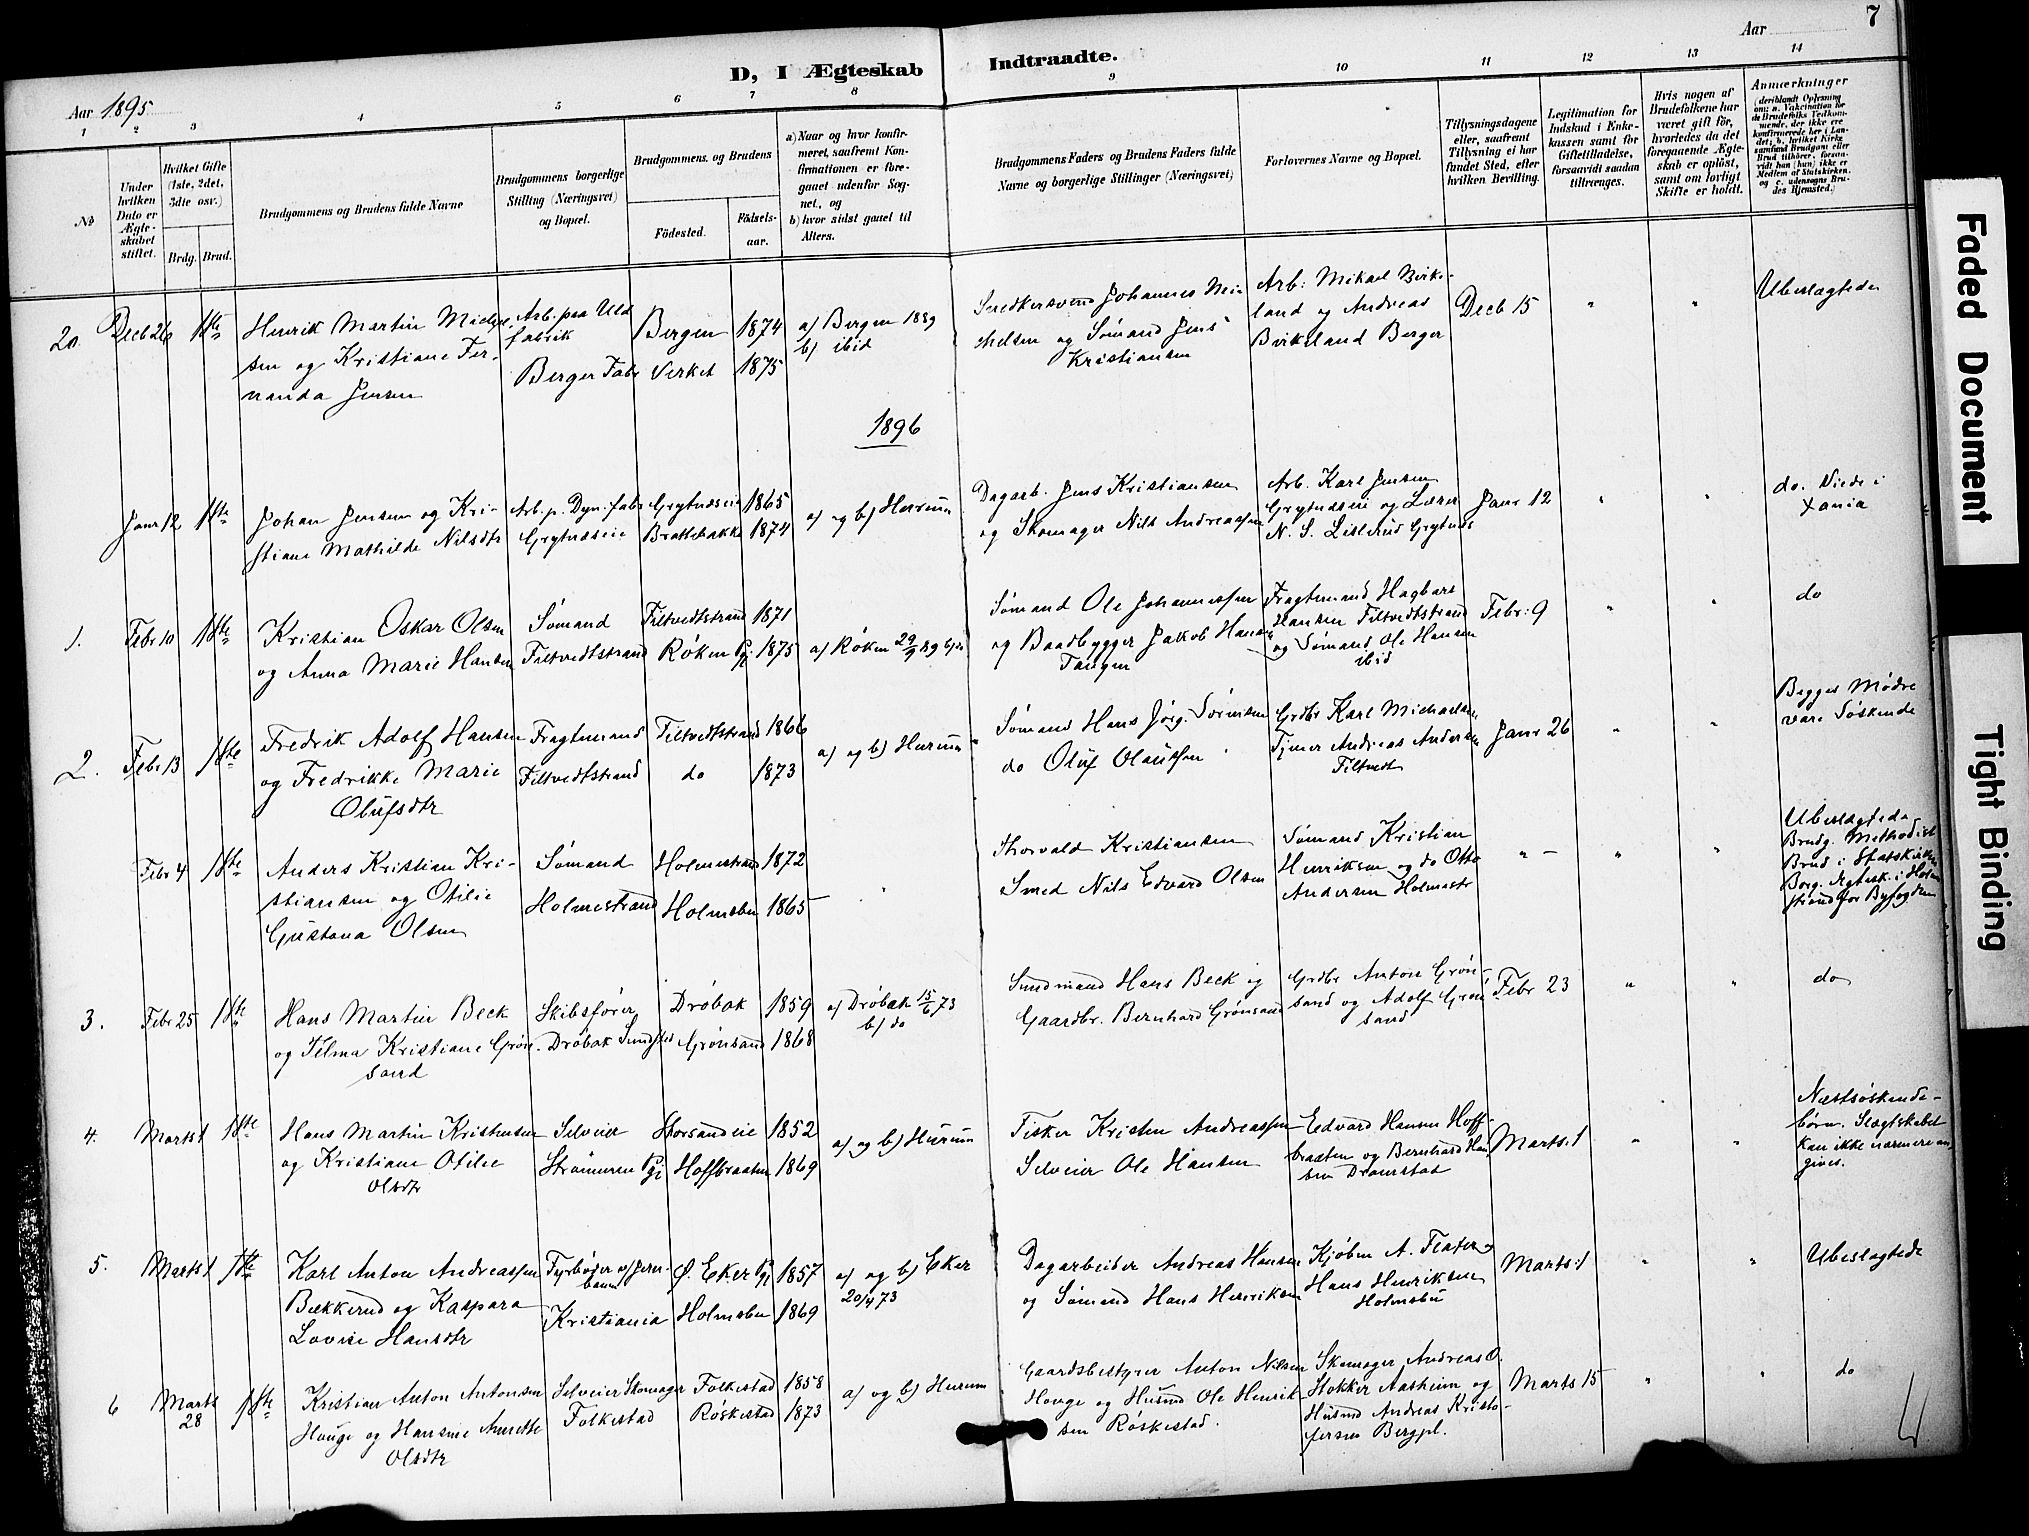 7
Aar 1895
D, I Ægteskab Indtraadte.
Aar
1 2 3 4 5 6 7 8 9 10 11 12 13 14
No
Under
hvilken
Dato er
Ægte-
skabet
stiftet.
Hvilket Gifte
(1ste, 2det,
3die osv.)
Brdg. Brud.
Brudgommens og Brudens fulde Navne
Brudgommens borgerlige
Stilling (Næringsvei)
og Bopæl.
Brudgommens og Brudens
Födested.
Födsels-
aar.
a) Naar og hvor konfir-
meret, saafremt Kon-
firmationen er fore-
gaaet udenfor Sog-
net, og
b) hvor sidst gaaet til
Alters.
Brudgommens Faders og Brudens Faders fulde
Navne og borgerlige Stillinger (Næringsvei)
Forlovernes Navne og Bopæl.
Tillysningsdagene
eller, saafremt
Tillysning ei har
fundet Sted, efter
hvilken Bevilling.
Legitimation for
Indskud i Enke-
kassen samt for
Giftetilladelse,
forsaavidt saadan
tiltrænges.
Hvis nogen af
Brudefolkene har
været gift før,
hvorledes da det
foregaaende Ægte-
skab er opløst,
samt om lovligt
Skifte er holdt.
Anmærkninger
(deriblandt Oplysning
om: a. Vakcination for
de Brudefolks Vedkom-
mende, der ikke ere
konfirmerede her i Lan-
det; b. hvilket Kirke
samfund Brudgom eller
Brud tilhører, forsaa-
vidt han (hun) ikke er
Medlem af Statskirken,
og c. udensogns Bru-
des Hjemsted.)
20. Decb 26 1ste
Henrik Martin Michel-
sen og Kristiane Fer-
nanda Jensen
Arb. paa Uld
fabrik
Berger Fabr
Bergen 1874
Verket 1875
a) Bergen 1889
b) ibid
Snedkersvend Johannes Mi-
chelsen og Sømand Jens
Kristiansen
Arb: Mikael Birke-
land og Andreas
Birkeland Berger
Decb 15 " "
Ubeslægtede
1896
Janr 12 1ste
Johan Jensen og Kri-
stiane Mathilde Nilsdtr
Arb. p. Dyn: fabr
Grytnæseie
Grytnæseie 1865
Brattebakke 1874
a) og b) Hurum
Dagarb. Jens Kristiansen
og Skomager Nils Andreassen
Arb. Karl Jensen
Grytnæseie og Lærer
N. S. Lislerud Grytnæs
Janr 12 " "
do. Viede i
Xania
1. Febr 10 1ste
Kristian Oskar Olsen
og Anna Marie Hansen
Sømand
Filtvedtstrand
Filtvedtstrand 1871
Røken Pgj 1875
a) Røken 29/9 89
Sømand Ole Johannessen
og Baadbygger Jakob Hansen
Tangen
Fragtemand Hagbart
Hansen Filtvedtstrand
og Sømand Ole Hansen
ibid
Febr: 9 " "
do
2. Febr 13 1ste
Fredrik Adolf Hansen
og Fredrikke Marie
Olufsdtr
Fragtemand
Filtvedtstrand
Filtvedtstrand 1866
do 1873
a) og b) Hurum
Sømand Hans Jörg. Sörensen
do Oluf Olaussen
Grdbr Karl Michaelsen
Tjener Andreas Andersen
Filtvedt
Janr 26 " "
Begges Mødre
vare Søskende
Febr 4 1ste
Anders Kristian Kri-
stiansen og Otilie
Gustava Olsen
Sømand
Holmestrand
Holmestrand 1872
Holmsbu 1865
"
Thorvald Kristiansen
Smed Nils Edvard Olsen
Sømand Kristian
Henriksen og do Otto
Andersen Holmestr
" – " "
Ubeslægtede
Brudg. Methodist
Brud i Statskirken
Borg. Ægtesk. i Holm
strand for Byfogden
3. Febr 25 1ste
Hans Martin Beck
og Tilma Kristiane Grön-
sand
Skibsfører
Drøbak Sundsted
Drøbak 1859
Grønsand 1868
a) Drøbak 15/6 73
b) do
Sundmand Hans Beck og
Gaardbr. Bernhard Grønsand
Grdbr Anton Grön-
sand og Adolf Grön-
sand
Febr 23 " "
do
4. Marts 1 1ste
Hans Martin Kristensen
og Kristiane Otilie
Olsdtr
Selveier
Strømmen Pgj
Storsandeie 1852
Hoffbraaten 1869
a) og b) Hurum
Fisker Kristen Andreassen
Selveier Ole Hansen
Edvard Hansen Hoff-
braaten og Bernhard Han-
sen Dramstad
Marts: 1 " "
Næstsøskende-
börn. Slægtskabet
kan ikke nærmere an-
gives.
5. Marts 1 1ste
Karl Anton Andreassen
Bækkerud og Kaspara
Lovise Hansdtr
Fyrbøder v/ Jern-
banen
Kristiania
Ø. Eker Pgj 1857
Holmsbu 1869
a) og b) Eker
20/4 73
Dagarbeider Andreas Hansen
og Sømand Hans Henriksen
Kjöbm A.
Hans Henriksen
Holmsbu
Marts: 1 " "
Ubeslægtede
6 Marts
28 1ste
Kristian Anton Antonsen
Houge og Hansine Annette
Olsdtr
Selveier Skomager
Folkestad
Folkestad 1858
Röskestad 1873
a) og b) Hurum
Gaardsbestyrer Anton Nilsen
Houge og Husmd Ole Henrik-
sen Röskestad.
Skomager Andreas O.
Stokker Aasheim og
Husmd Andreas Kristo-
fersen Bergpl.
Marts 15 " "
do
Faded Document
Tight Binding